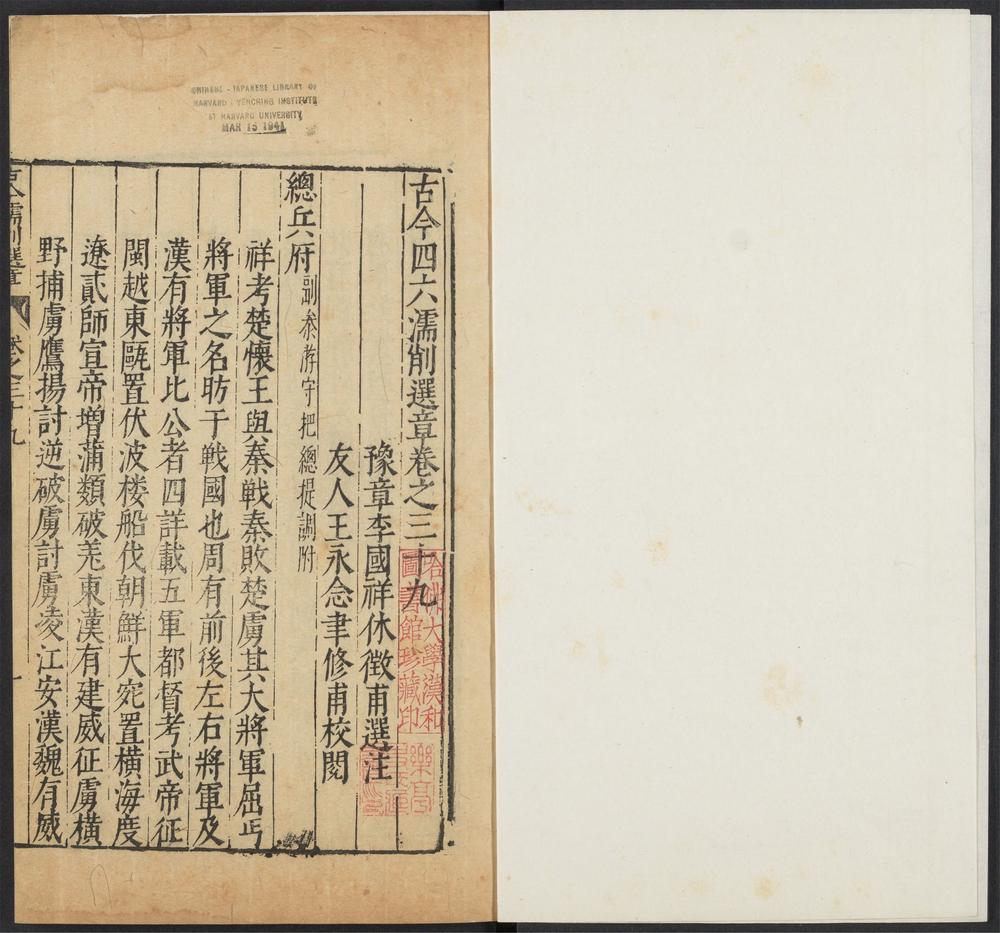 CHINESE - JAPANESE LIBRARY OF
HARVARD - YENCHING INSTITUTE
AT HARVARD UNIVERSITY
MAR 15 1941
古今四六濡削選章卷之三十九
豫章李國祥休徵甫選注
友人王永念聿修甫校閱
總兵府副叅游守把總提調附
祥考楚懷王與秦戰秦敗楚虜其大將軍屈丐
將軍之名昉于戰國也周有前後左右將軍及
漢有將軍比公者四詳載五軍都督考武帝征
閩越東甌置伏波楼船伐朝鮮大宛置橫海度
遼貳師宣帝增蒲類破羌東漢有建威征虜橫
野捕虜鷹揚討逆破虜討虜凌江安漢魏有威
古今濡削選章
卷之三十九
一
哈佛大學漢和
圖書館珍藏印